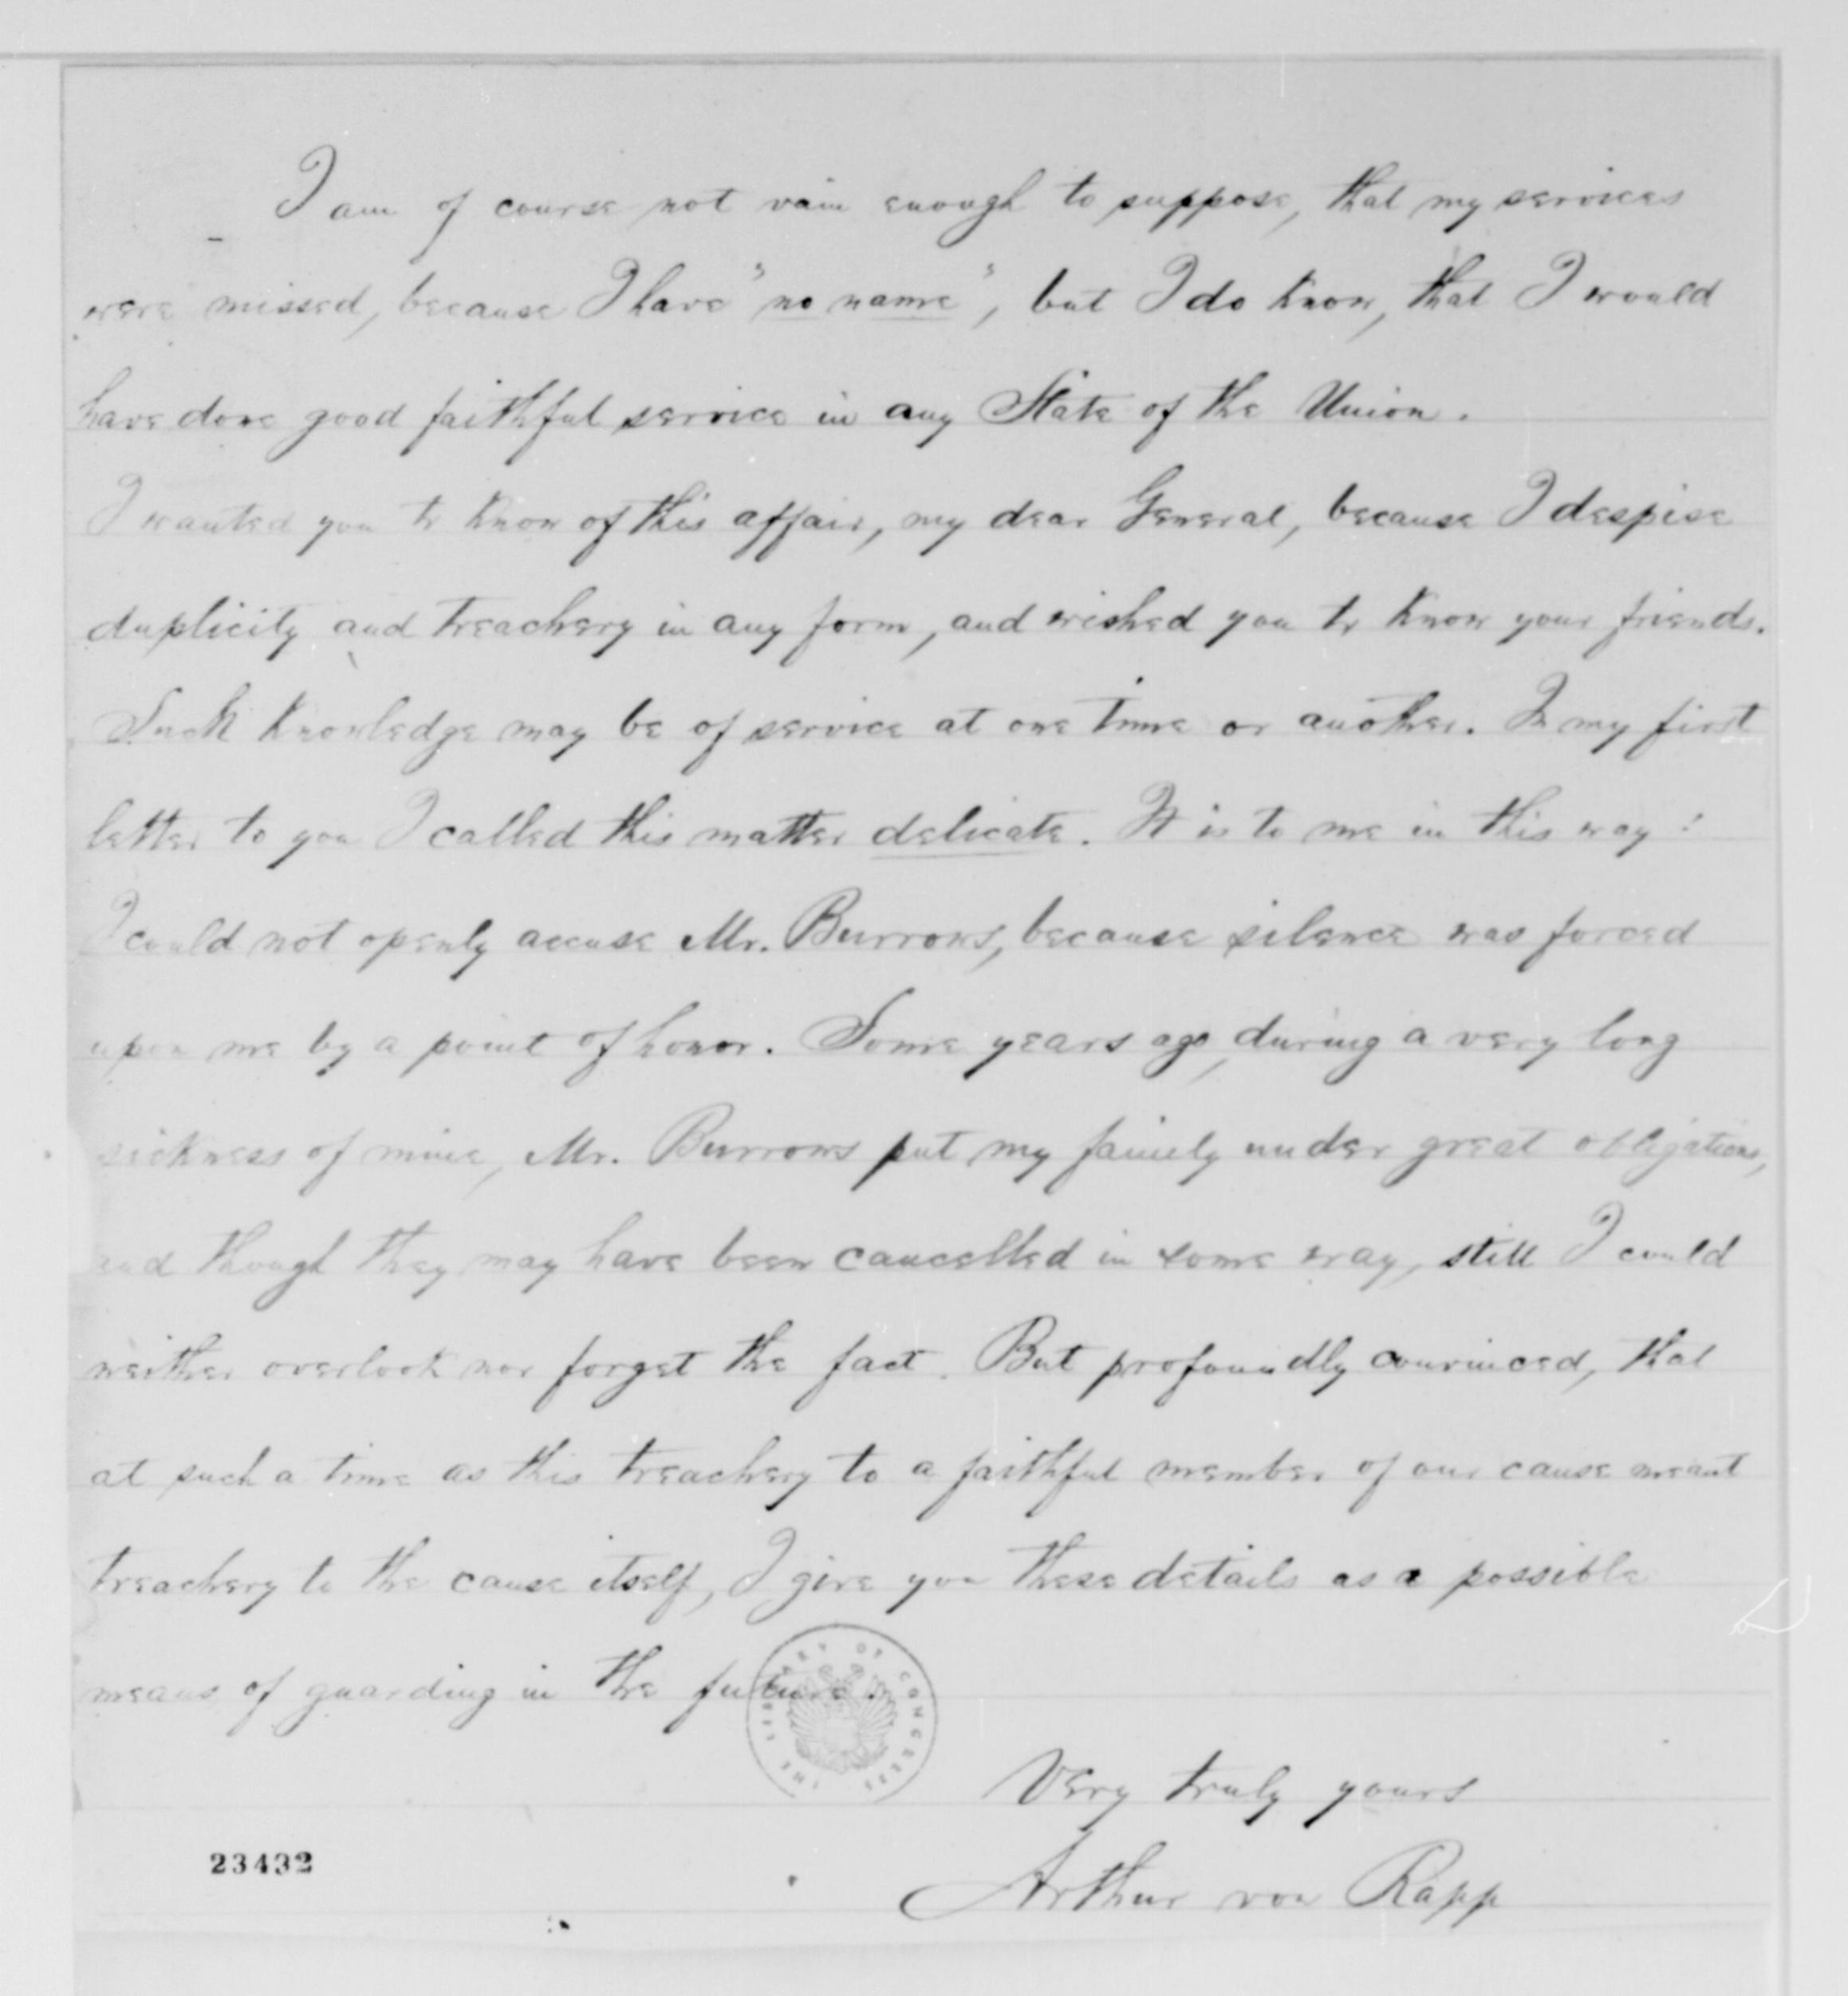 I am of course not vain enough to suppose, that my services
were missed, because I have "no name", but I do know, that I would
have done good faithful service in any State of the Union.
I wanted you to know of this affair, my dear General, because I despise
duplicity and treachery in any form, and wished you to know your friends.
Such knowledge may be of service at one time or another. In my first
letter to you I called this matter delicate. It is to me in this way:
I could not openly accuse Mr. Burrows, because silence was forced
upon me by a point of honor. Some years ago, during a very long
sickness of mine, Mr. Burrows put my family under great obligations,
and though they may have been cancelled in some way, still I could
neither overlook nor forget the fact. But profoundly convinced, that
at such a time as this treachery to a faithful member of our cause meant
treachery to the cause itself, I give you these details as a possible
means of guarding in the future.
THE LIBRARY OF CONGRESS
Very truly yours
23432
Arthur von Rapp